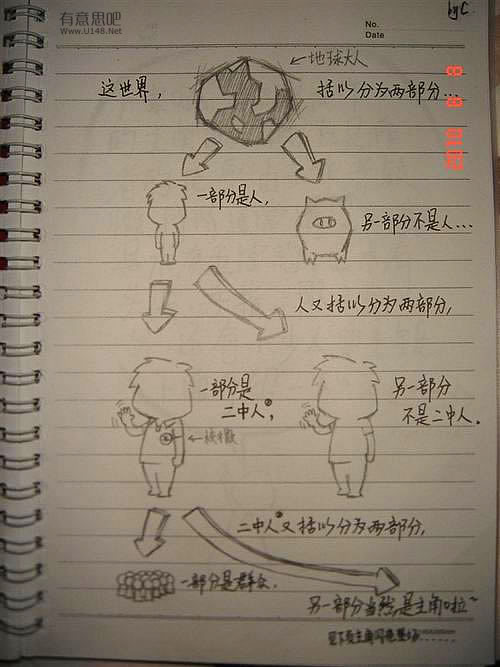 有意思吧
Www.U148.Net
by C
No.
Date
←地球大人
这世界,
括以分为两部分...
一部分是人,
另一部分不是人...
人又括以分为两部分,
一部分是
二中人,
另一部分
不是二中人.
←校徽
二中人又括以分为两部分,
一部分是群众.
另一部分当然是主角啦~